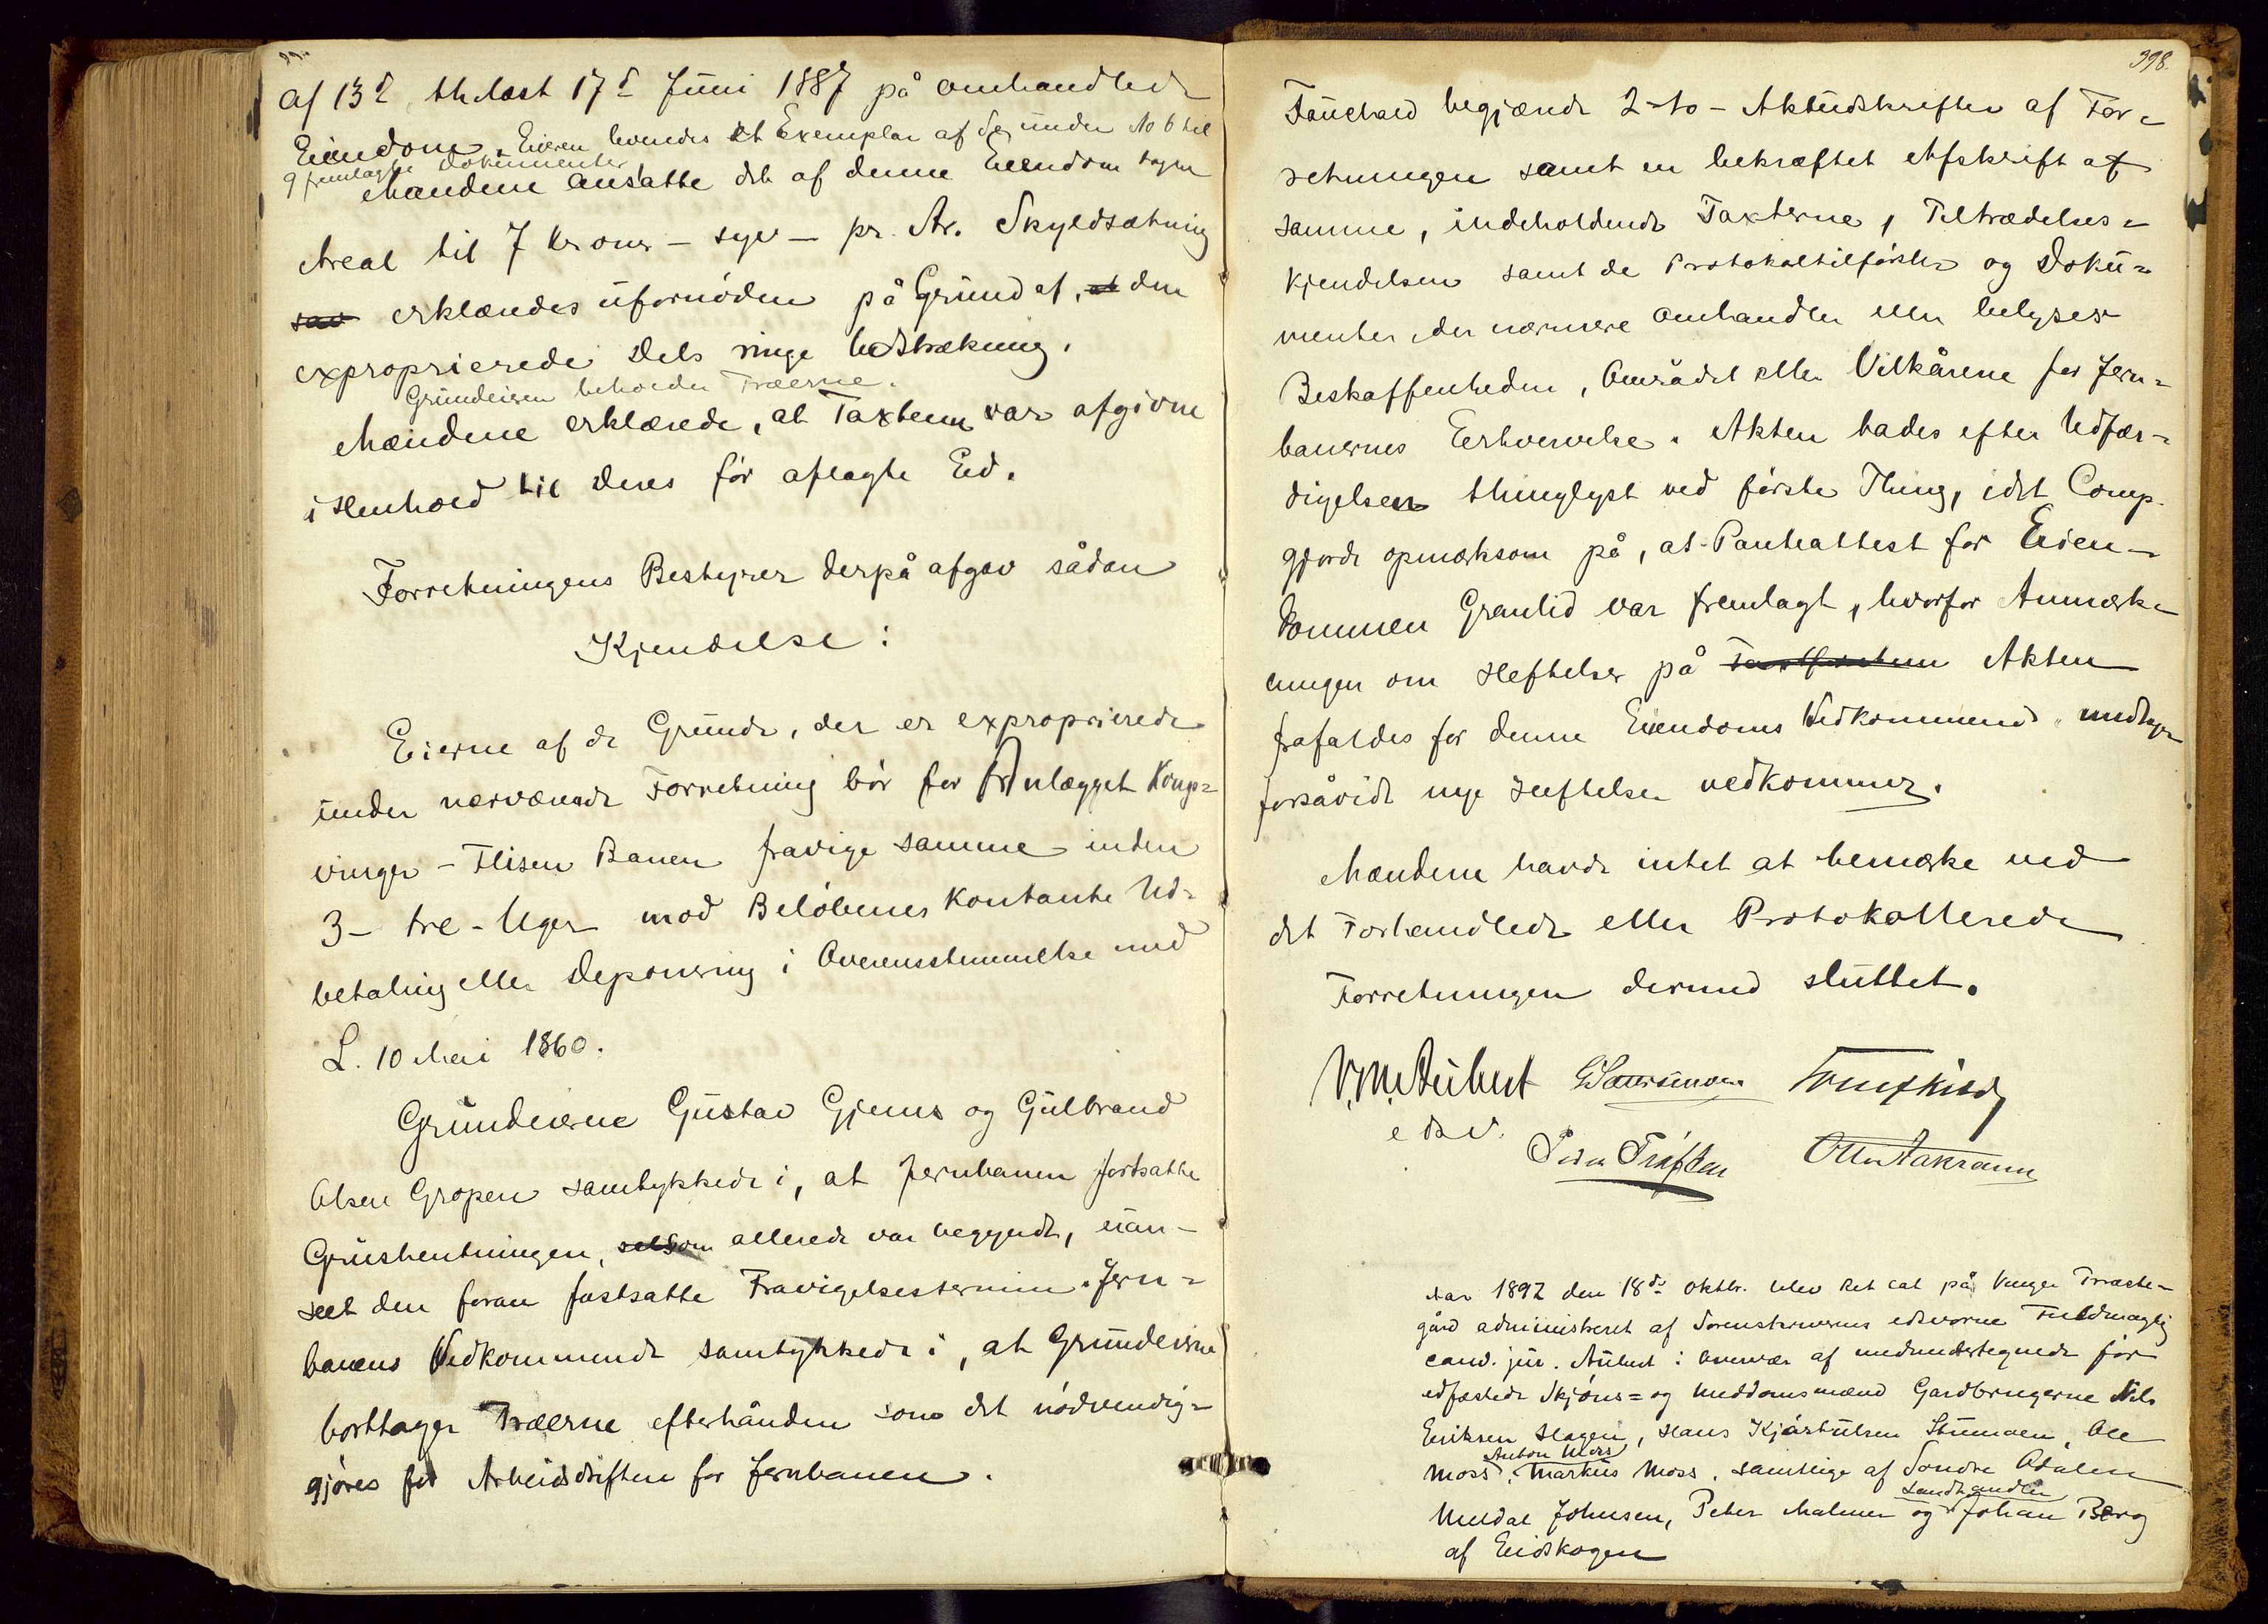 af 13d, thlæst 17d Juni 1887 på omhandlede
Eiendom. Eieren leveredes et Exemplar af de under No 6 til
9 fremlagte Dokumenter
Mændene ansatte det af denne Eiendom tagne
Areal til 7 kroner - syv - pr. Ar. Skyldsætning
erklæredes ufornøden på Grund af, at den
exproprierede Dels ringe Udstrækning.
Grundeieren beholder Træerne.
Mændene erklærede, at Taxterne var afgivne
i Henhold til deres før aflagte Ed.
Forretningens Bestyrer derpå afgav sådan
Kjendelse:
Eierne af de Grunde, der er exproprierede
under nærværende Forretning bør for Anlægget Kongs=
vinger - Flisen Banen fravige samme inden
3 - tre - Uger mod Beløbenes kontante Ud=
betaling eller Deponering i Overensstemmelse med
L. 10 Mai 1860.
Grundeierne Gustav Gjems og Gulbrand
Olsen Gropen samtykkede i, at Jernbanen fortsatte
Grushentningen, som allerede var begyndt, uan-
seet den foran fastsatte Fravigelsestermin. Jern=
banens Vedkommende samtykkede i, at Grundeierne
borttager Træerne efterhånden som det nødvendig=
gjøres for Arbeidsdriften for Jernbanen.
398.
Fauchald begjærede 2 - to - Aktudskrifter af For=
retningen samt en bekræftet Afskrift af
samme, indeholdende Taxterne, Tiltrædelses=
kjendelsen samt de Protokoltilførsler og Doku=
menter, der nærmere omhandler eller belyser
Beskaffenheden, Området eller Vilkårene for Jern=
banernes Erhvervelse. Akten bades efter Udfær=
digelsen thinglyst ved første Thing, idet Comp.
gjorde opmærksom på, at Panteattest for Eien-
dommen Granlid var fremlagt, hvorfor Anmærk-
ningen om Heftelser på Akten
frafaldes for denne Eiendoms Vedkommende undtagen
forsåvidt nye Heftelser vedkommer.
Mændene havde intet at bemærke ved
det Forhandlede eller Protokollerede
Forretningen dermed sluttet.
V. M. Aubert
e da v.
Otto Aakrann
Aar 1892 den 18de Oktbr. blev Ret sat på Vinger Præste=
gård administreret af Sorenskriverens edsvorne Fuldmægtig
cand. jur. Aubert i Overvær af medundertegnede før
edfæstede Skjøns= og Meddomsmænd Gardbrugerne Nils
Eriksen Hagen, Hans Kjøstulsen Stumoen, Ole
Anton Moss
Moss, Markus Moss, samtlige af Søndre Odalen
Landhandler
Meldal Johnsen, Peter Malmer og Johan Berg
af Eidskogen